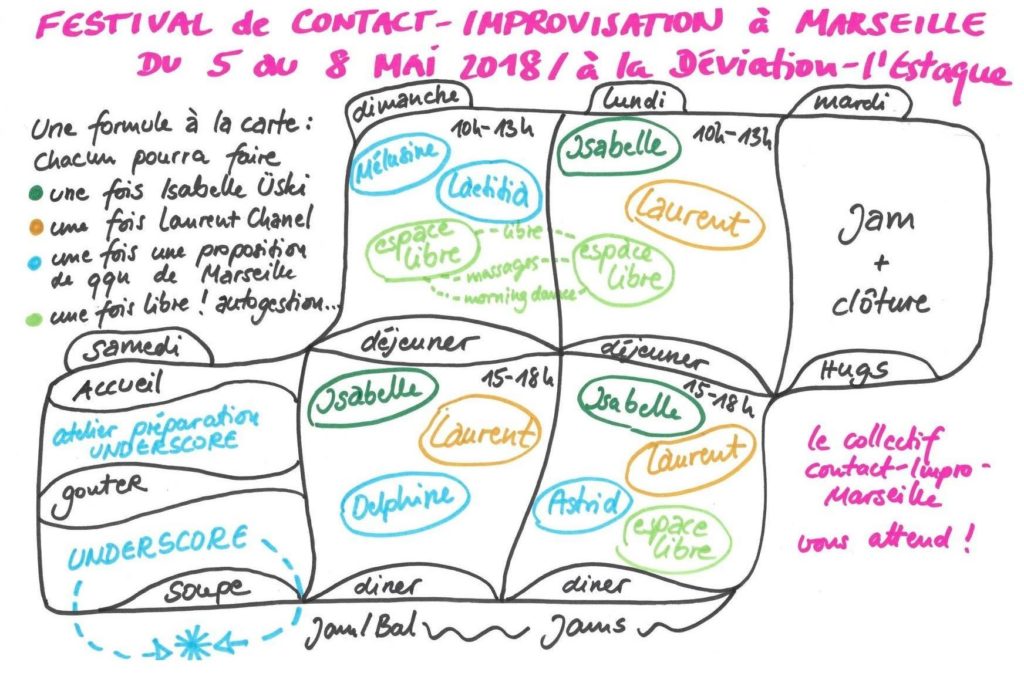 FESTIVAL de CONTACT-IMPROVISATION à MARSEILLE
DU 5 au 8 MAI 2018 / à la Déviation-l'Estaque
Une formule à la carte :
chacun pourra faire
une fois Isabelle Üski
une fois Laurent Chanel
une fois une proposition
de qqn de Marseille
une fois libre ! autogestion...
samedi
Accueil
atelier préparation
UNDERSCORE
gouter
UNDERSCORE
soupe
dimanche
10h-13h
Mélusine
Laetitia
espace
libre
libre
massages
morning dance
déjeuner
15-18h
Isabelle
Laurent
Delphine
diner
Jam/Bal
lundi
10h-13h
Isabelle
Laurent
espace
libre
déjeuner
15-18h
Isabelle
Laurent
Astrid
espace
libre
diner
Jams
mardi
Jam
+
clôture
Hugs
le collectif
contact-Impro-
Marseille
vous attend !